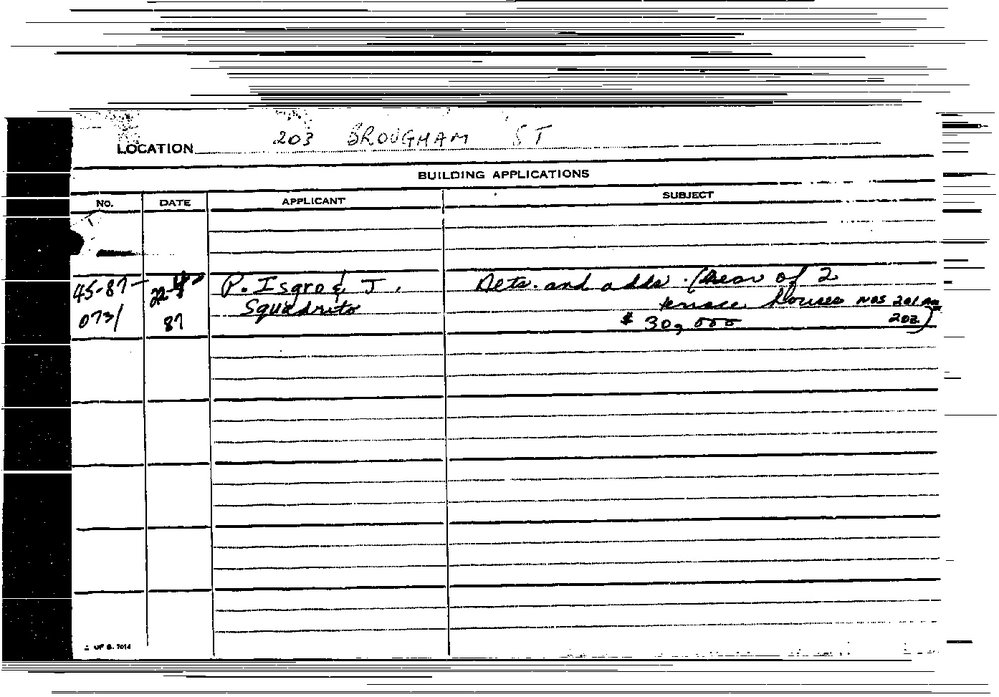 LOCATION 203 BROUGHAM ST
BUILDING APPLICATIONS
No. DATE APPLICANT SUBJECT
45-87- 22- P. Isgro & J. Alts. and adds. (Rear of 2
terrace houses Nos 201 and
073/ 87 Squadrito $ 30,000 203)